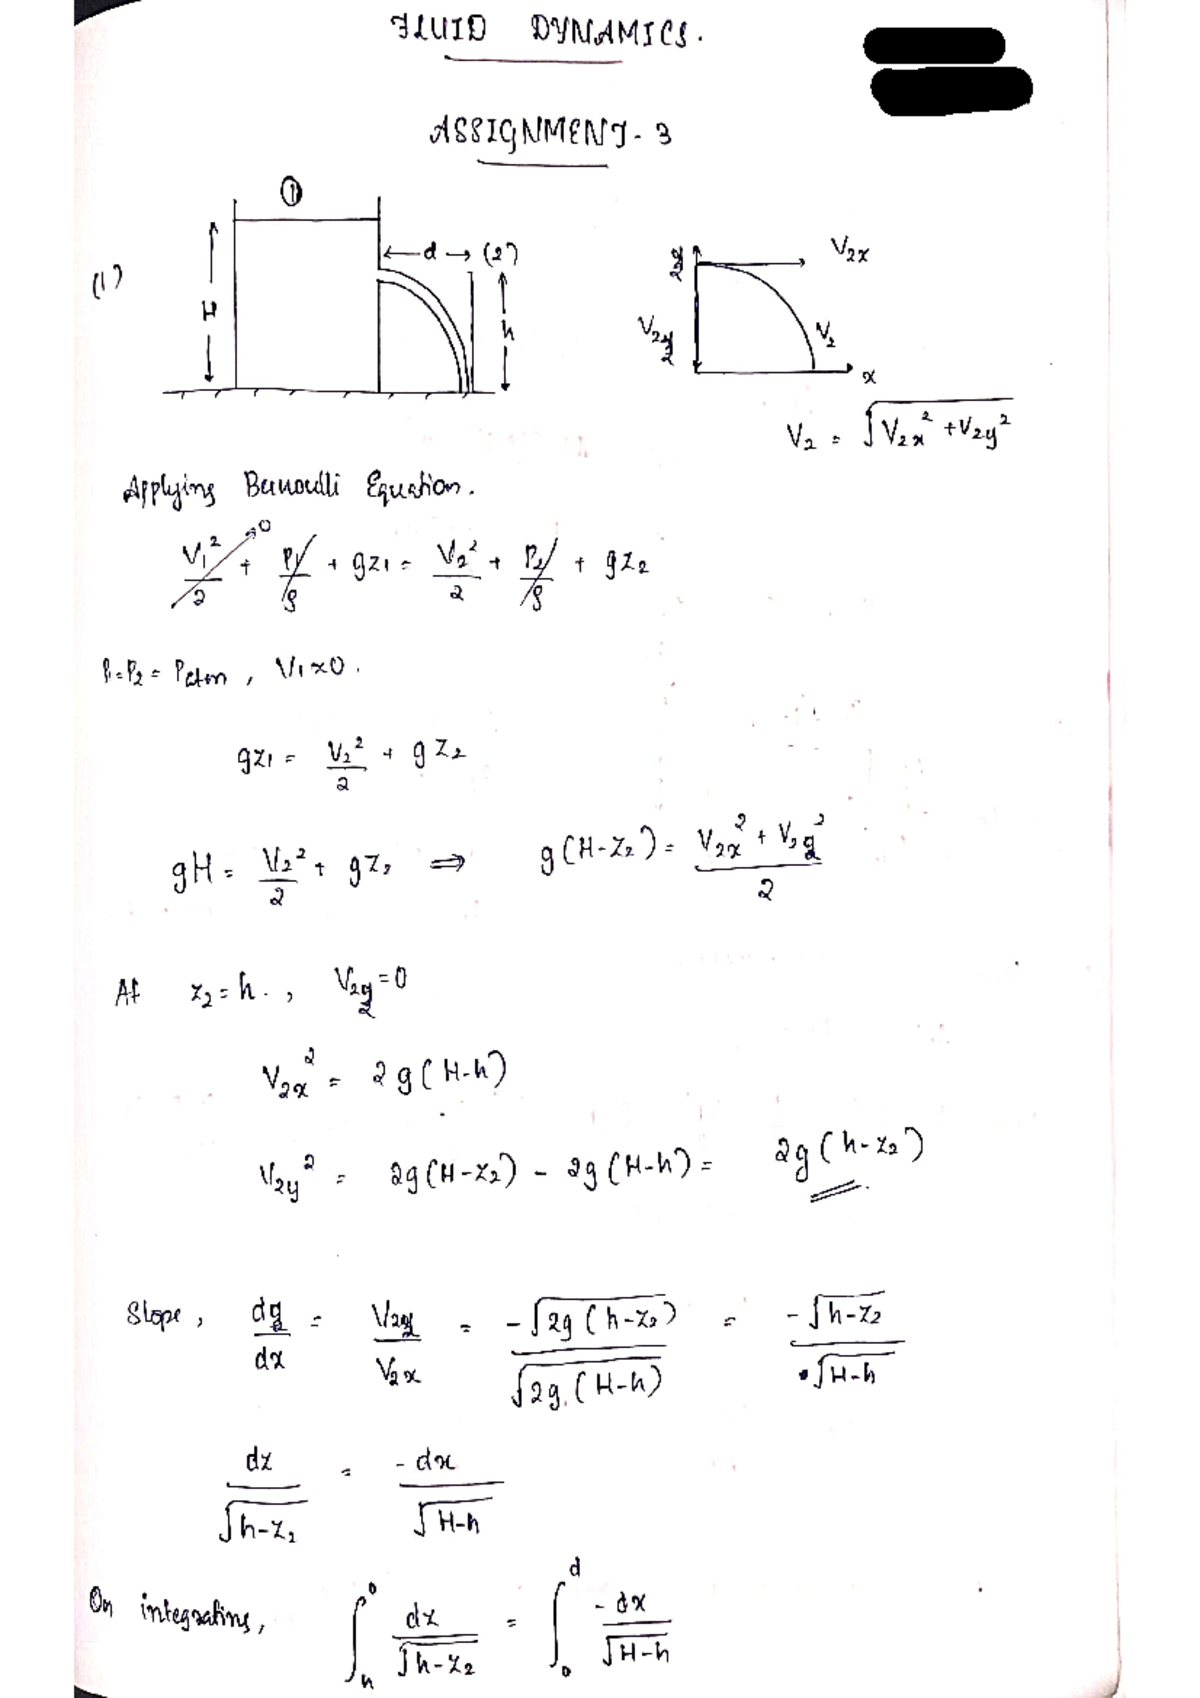 FLUID DYNAMICS.
ASSIGNMENT - 3
(1)
①
H
d (2)
h
z
V2x
V2z
V2
x
V2 = √(V2x² + V2y²)
Applying Bernoulli Equation.
V1²/2 →0 + P1/ρ + gz1 = V2²/2 + P2/ρ + gz2
P1 = P2 = Patm , V1 ≈ 0 .
gz1 = V2²/2 + gz2
gH = V2²/2 + gz2 ⇒ g(H-z2) = (V2x² + V2z²)/2
At z2 = h . , V2z = 0
V2x² = 2g(H-h)
V2y² = 2g(H-z2) - 2g(H-h) = 2g(h-z2)
Slope , dz/dx = V2z/V2x = -√(2g(h-z2))/√(2g.(H-h)) = -√(h-z2)/√(H-h)
dz/√(h-z2) = -dx/√(H-h)
On integrating, ∫_h^0 dz/√(h-z2) = ∫_0^d -dx/√(H-h)